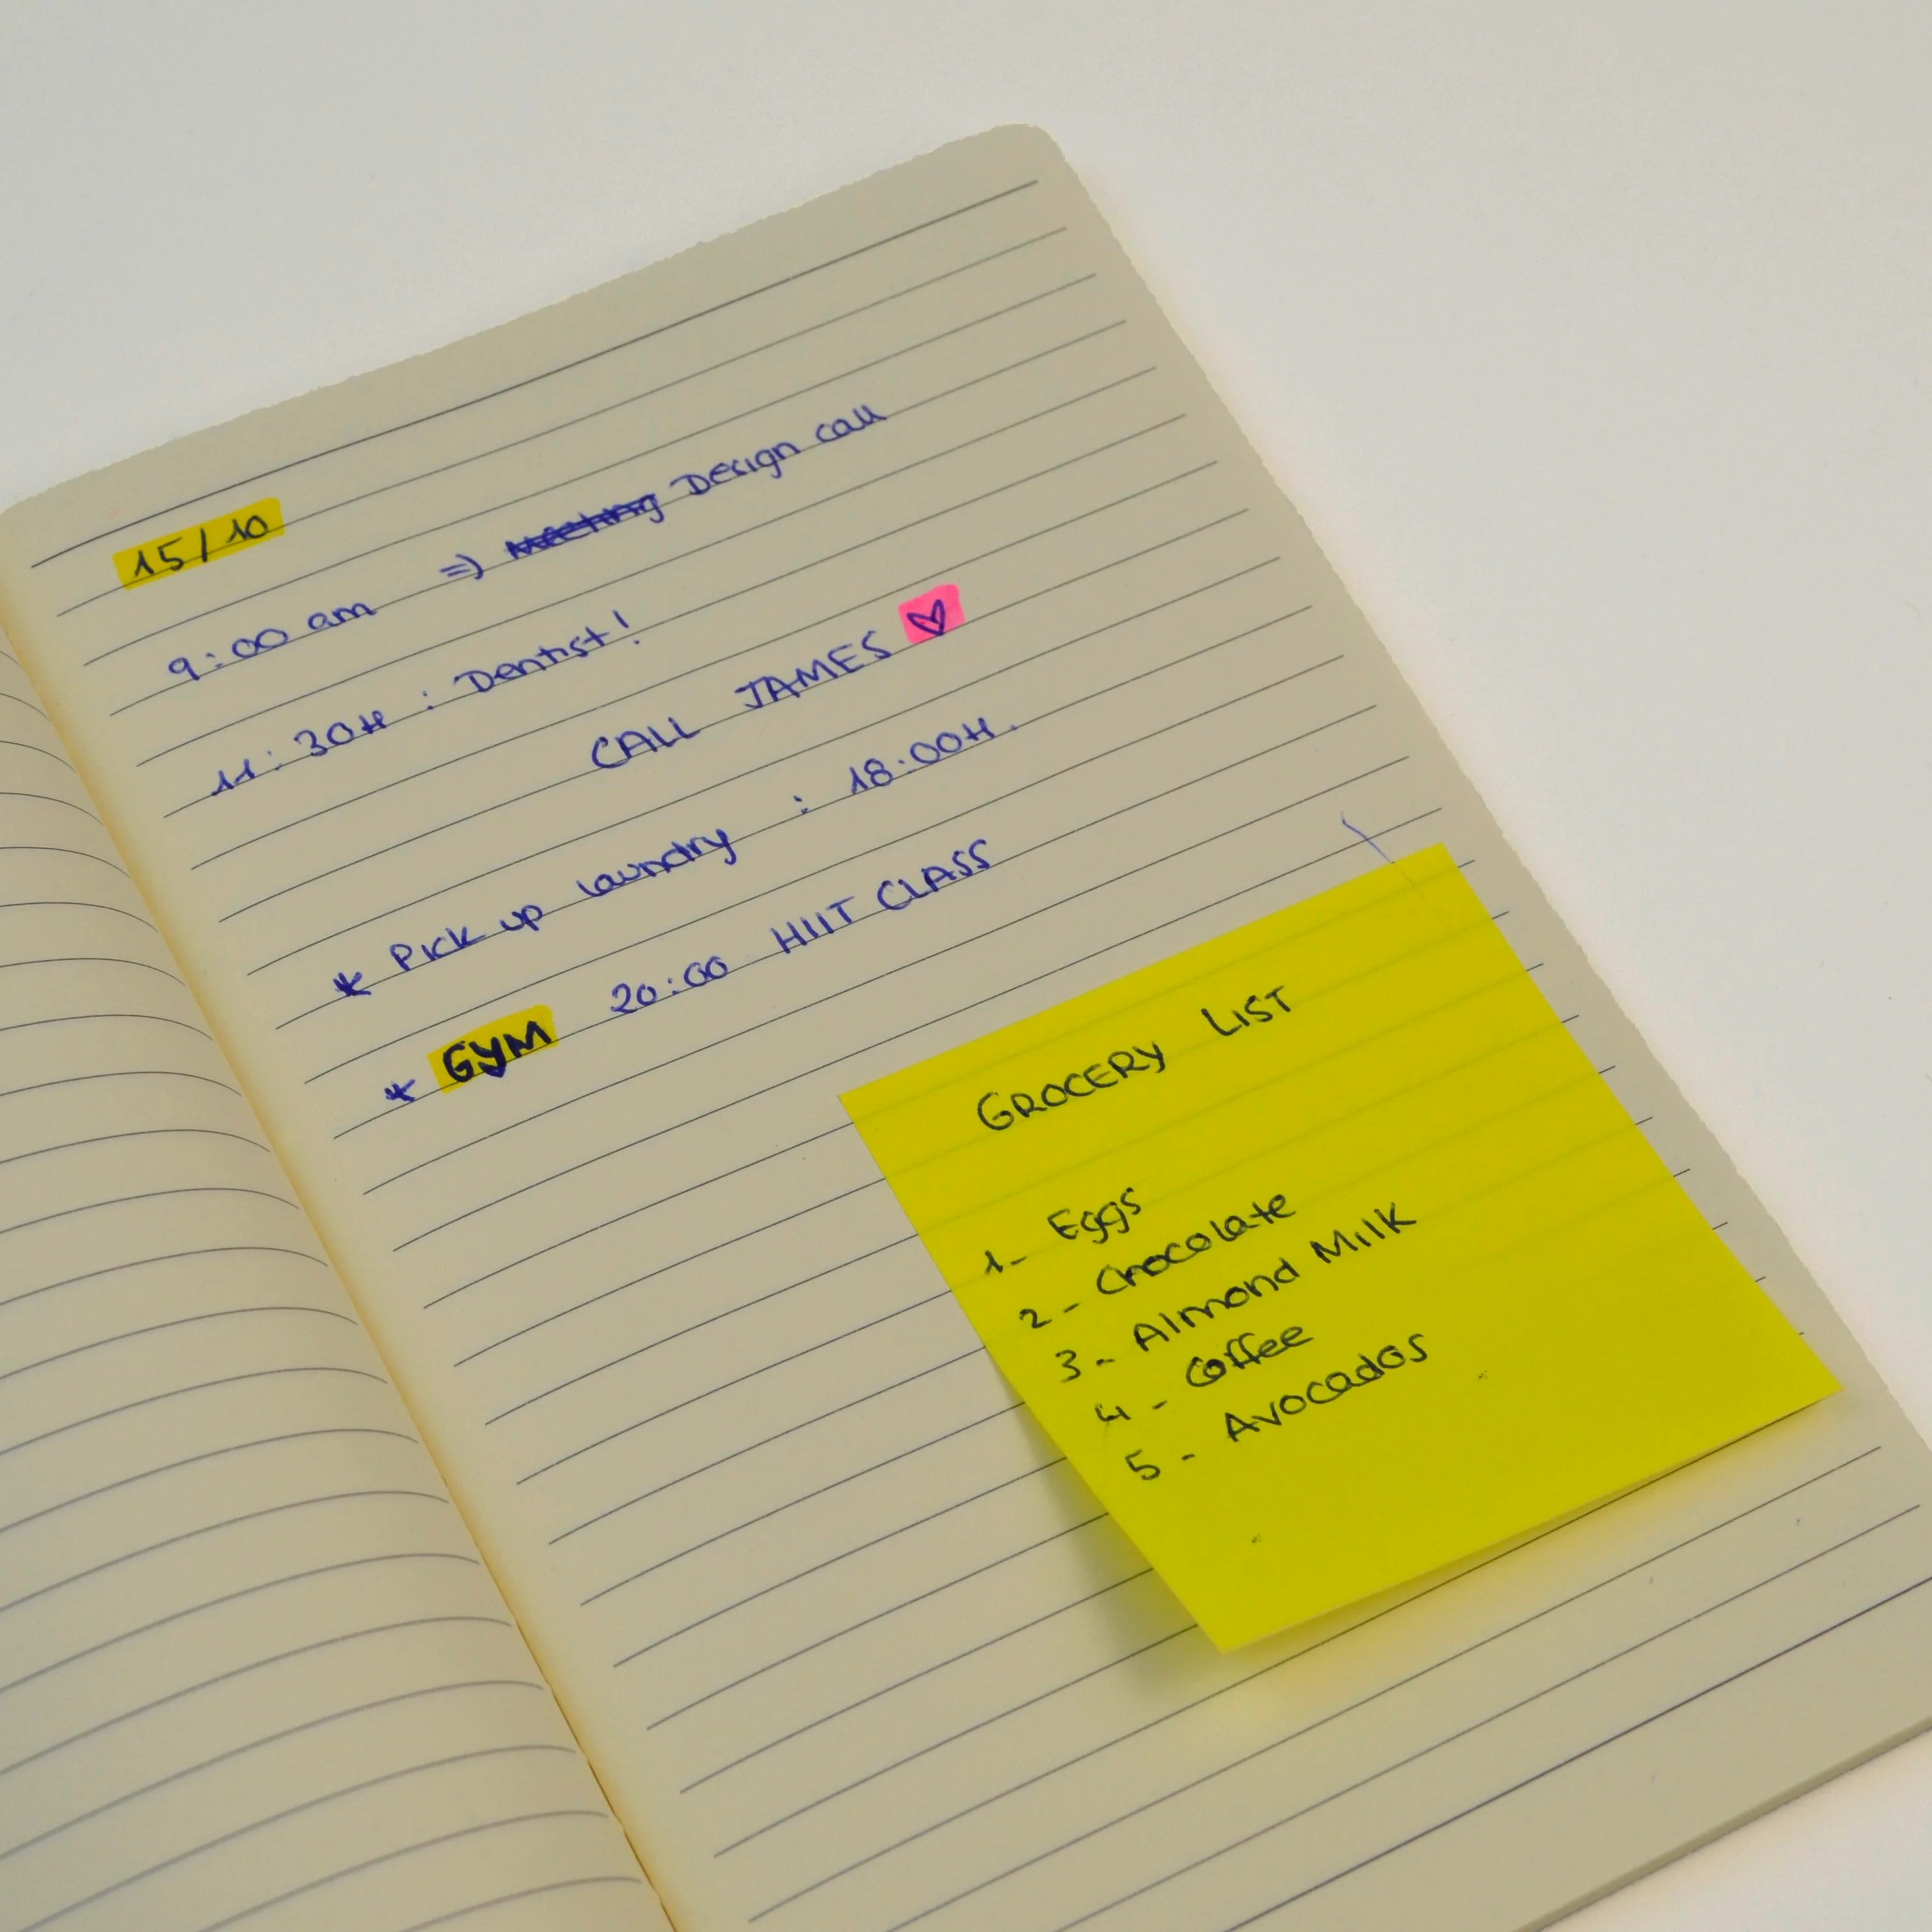 15/10
9:00 am => Design call
11:30H : Dentist!
CALL JAMES ♡
* Pick up laundry : 18:00H.
* GYM 20:00 HIIT CLASS
GROCERY LIST
1- Eggs
2- Chocolate
3- Almond Milk
4- Coffee
5- Avocados